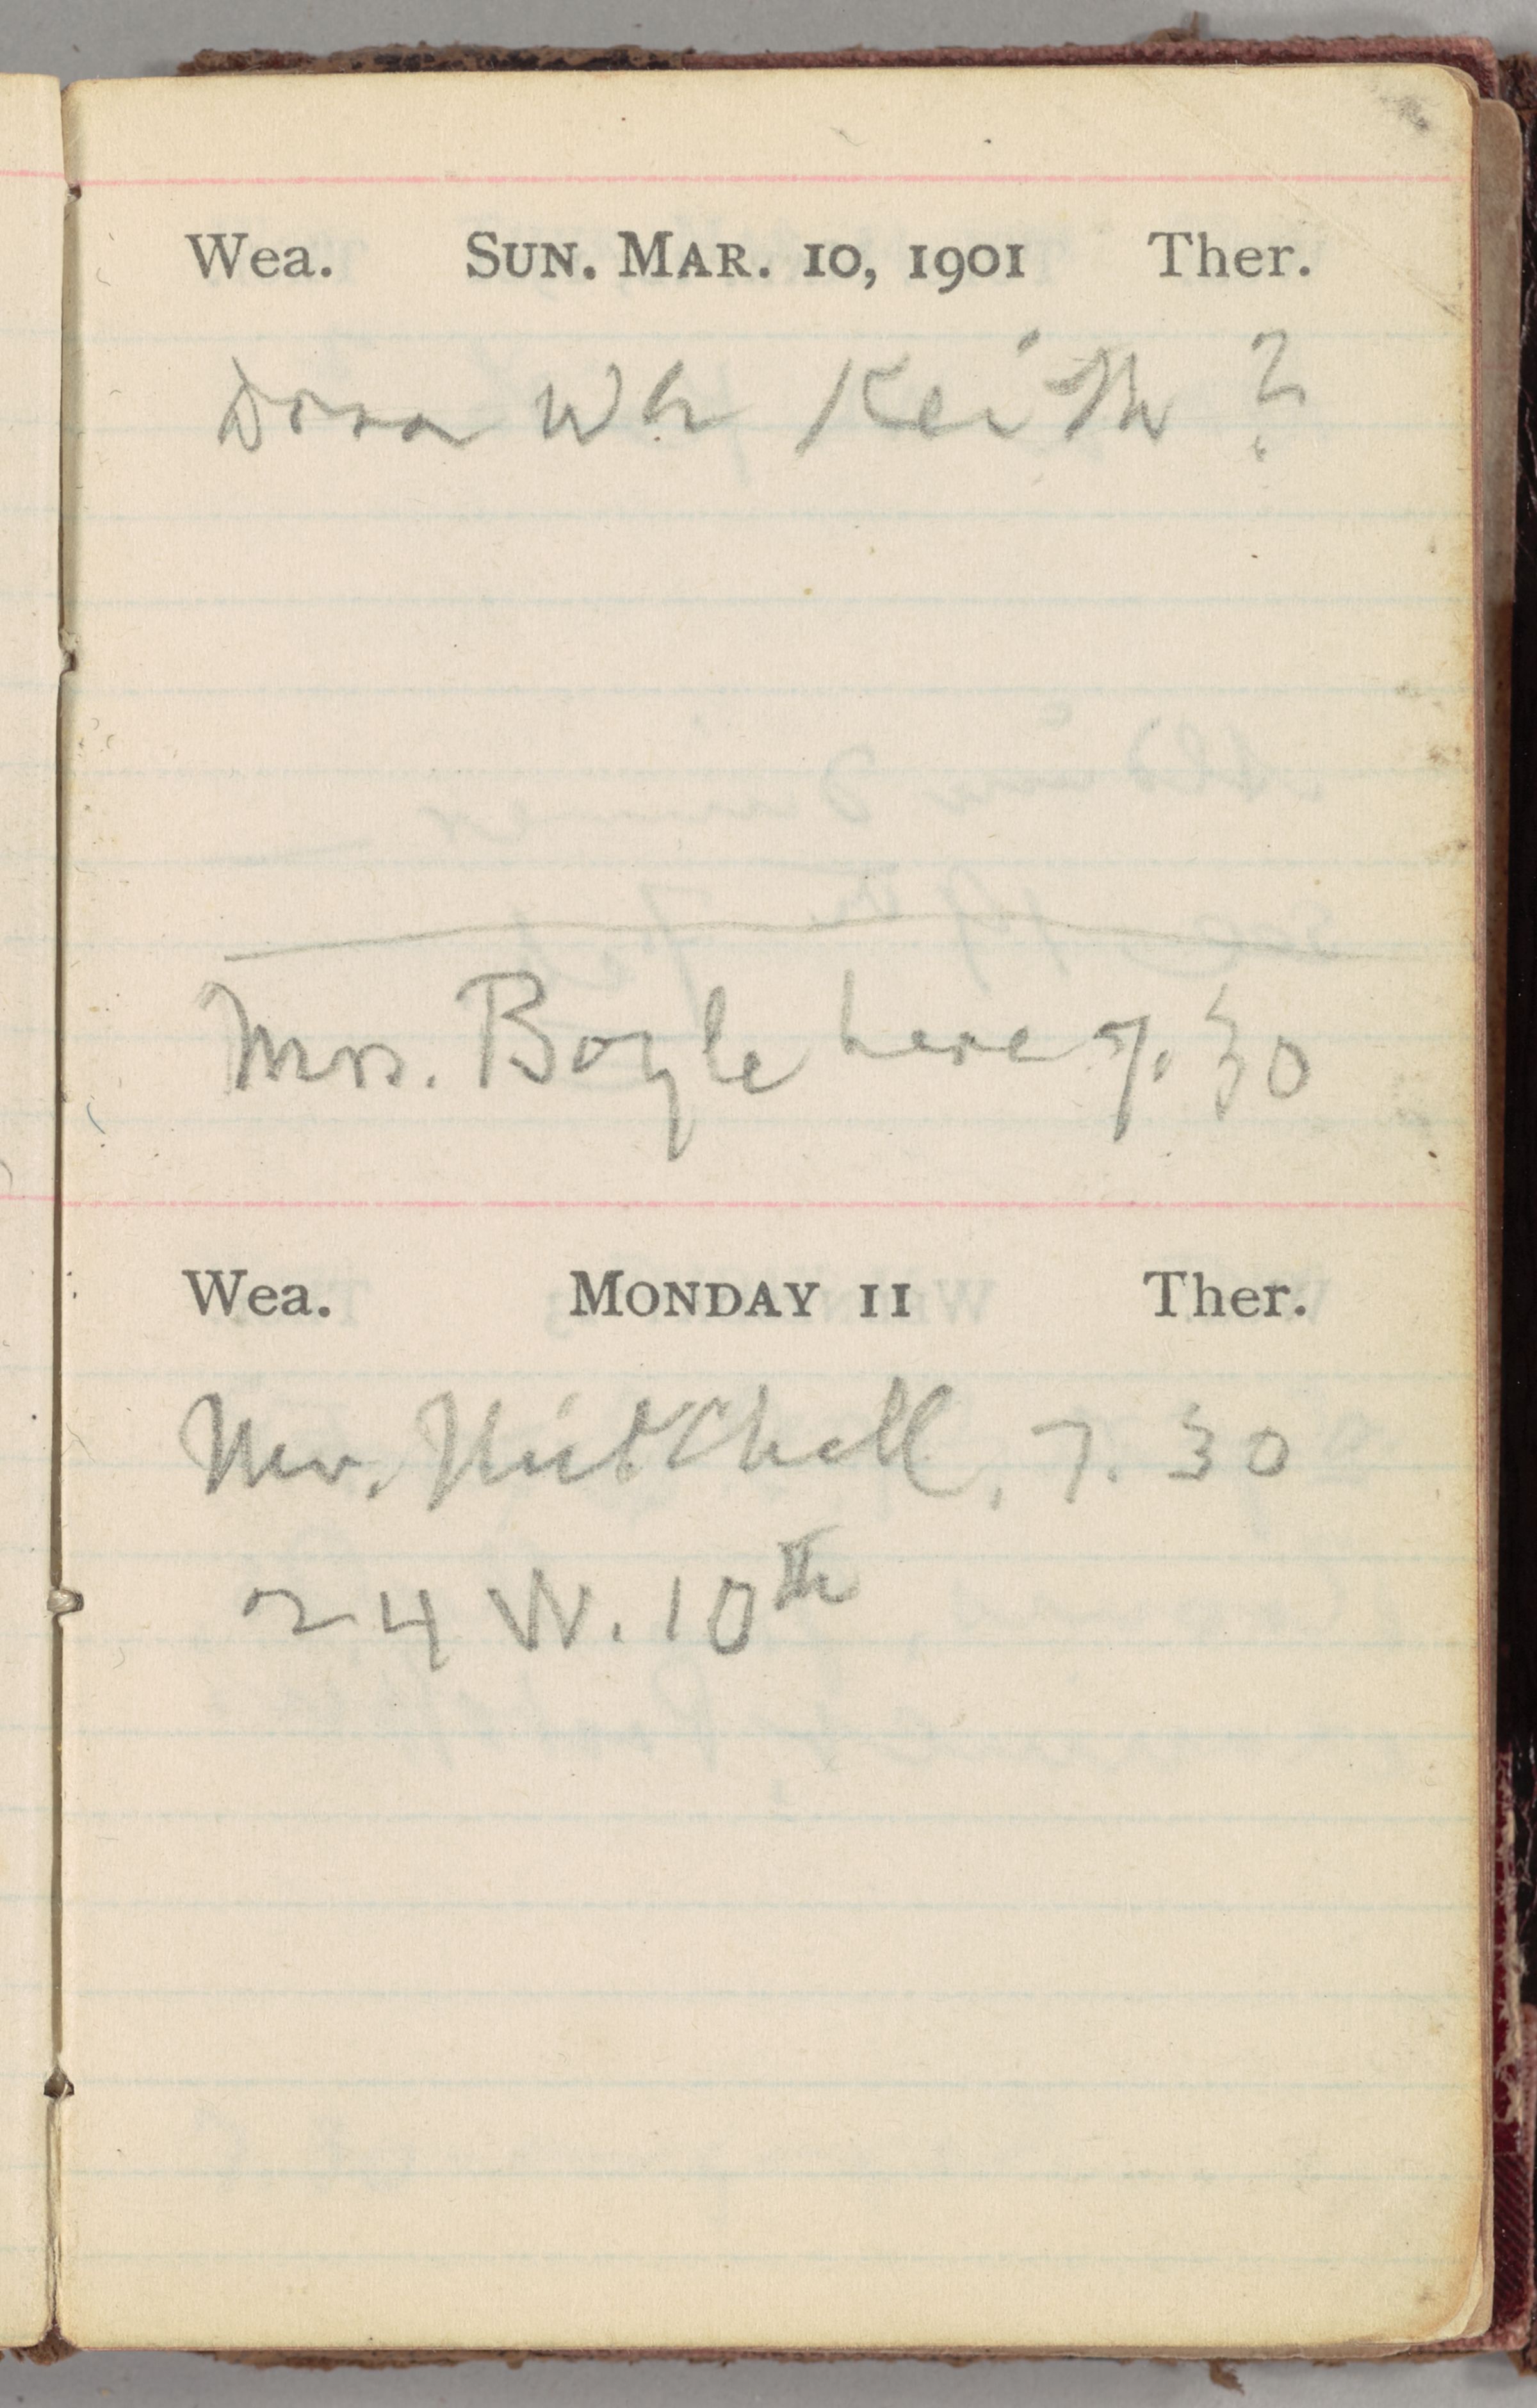 Wea. SUN. MAR. 10, 1901 Ther.
Dora Wh Keith ?
Mrs. Boyle here 7.30
Wea. MONDAY 11 Ther.
Mr. Mitchell, 7.30
24 W. 10th